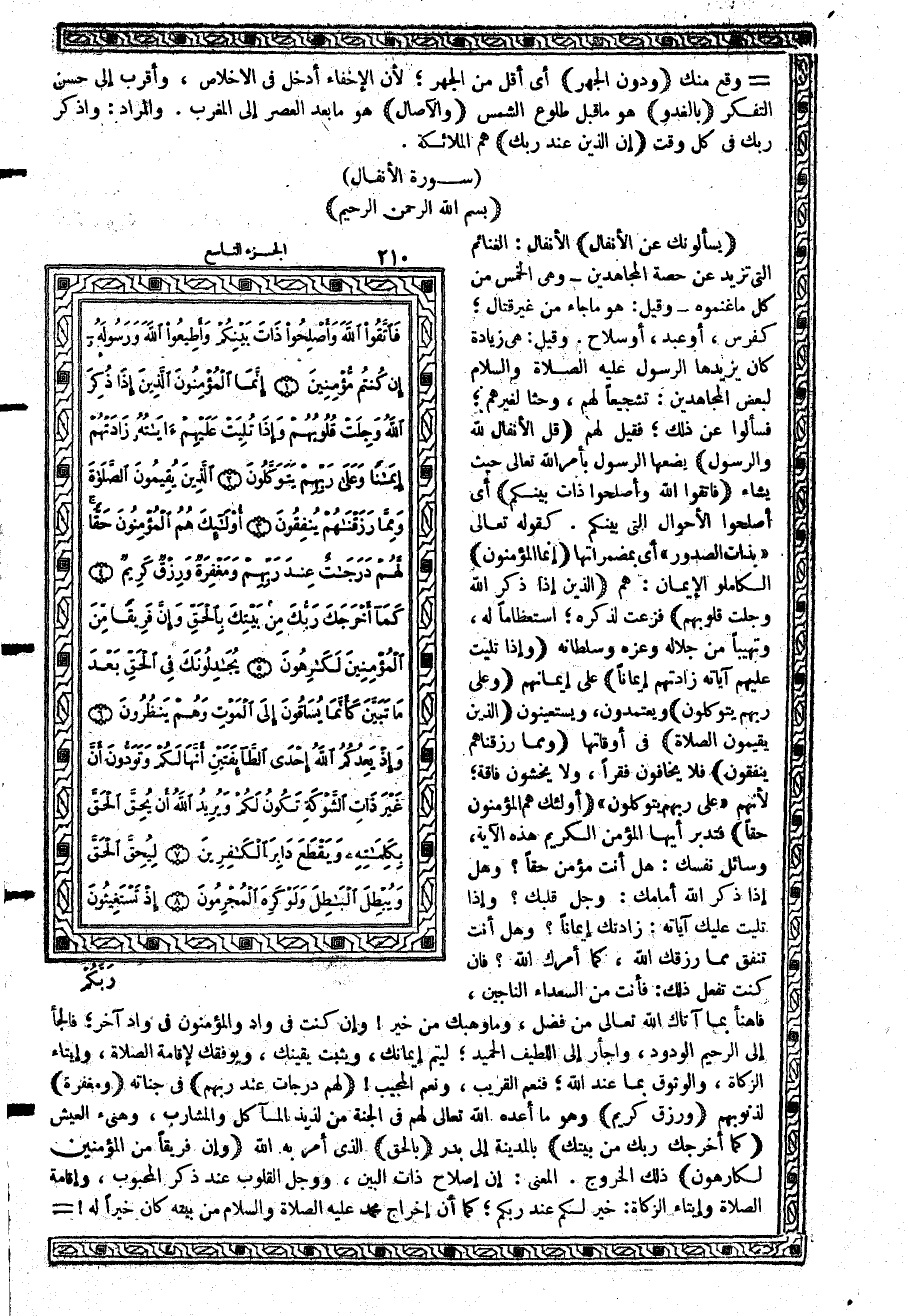 = وقع منك (ودون الجهر) أى أقل من الجهر ؛ لأن الإخفاء أدخل فى الاخلاص ، وأقرب إلى حسن
التفكر (بالغدو) هو ماقبل طلوع الشمس (والآصال) هو مابعد العصر إلى المغرب . والمراد: واذكر
ربك فى كل وقت (إن الذين عند ربك) هم الملائكة .
(ســورة الأنفال)
(بسم الله الرحمن الرحيم)
(يسألونك عن الأنفال) الأنفال : الغنائم
التى تزيد عن حصة المجاهدين ــ وهى الخمس من
كل ماغنموه ــ وقيل: هو ماجاء من غيرقتال ؛
كفرس ، أوعبد ، أوسلاح . وقيل: هى زيادة
كان يزيدها الرسول عليه الصلاة والسلام
لبعض المجاهدين : تشجيعاً لهم ، وحثا لغيرهم ؛
فسألوا عن ذلك ؛ فقيل لهم (قل الأنفال لله
والرسول) يضعها الرسول بأمر الله تعالى حيث
يشاء (فاتقوا الله وأصلحوا ذات بينكم) أى
أصلحوا الأحوال التى بينكم . كقوله تعالى
«بذات الصدور» أى بمضمراتها (إنما المؤمنون)
الكاملو الإيمان : هم (الذين إذا ذكر الله
وجلت قلوبهم) فزعت لذكره ؛ استعظاماً له ،
وتهيباً من جلاله وعزه وسلطانه (وإذا تليت
عليهم آياته زادتهم إيماناً) على إيمانهم (وعلى
ربهم يتوكلون) ويعتمدون، ويستعينون (الذين
يقيمون الصلاة) فى أوقاتها (ومما رزقناهم
ينفقون) فلا يخافون فقراً ، ولا يخشون فاقة؛
لأنهم «على ربهم يتوكلون» (أولئك هم المؤمنون
حقاً) فتدبر أيها المؤمن الكريم هذه الآية،
وسائل نفسك : هل أنت مؤمن حقاً ؟ وهل
إذا ذكر الله أمامك : وجل قلبك ؟ وإذا
تليت عليك آياته : زادتك إيماناً ؟ وهل أنت
تنفق مما رزقك الله ، كما أمرك الله ؟ فان
كنت تفعل ذلك: فأنت من السعداء الناجين ،
٢١٠ الجزء التاسع
فَاتَّقُوا۟ ٱللَّهَ وَأَصْلِحُوا۟ ذَاتَ بَيْنِكُمْ وَأَطِيعُوا۟ ٱللَّهَ وَرَسُولَهُۥٓ
إِن كُنتُم مُّؤْمِنِينَ ١ إِنَّمَا ٱلْمُؤْمِنُونَ ٱلَّذِينَ إِذَا ذُكِرَ
ٱللَّهُ وَجِلَتْ قُلُوبُهُمْ وَإِذَا تُلِيَتْ عَلَيْهِمْ ءَايَٰتُهُۥ زَادَتْهُمْ
إِيمَٰنًا وَعَلَىٰ رَبِّهِمْ يَتَوَكَّلُونَ ٢ ٱلَّذِينَ يُقِيمُونَ ٱلصَّلَوٰةَ
وَمِمَّا رَزَقْنَٰهُمْ يُنفِقُونَ ٣ أُو۟لَٰٓئِكَ هُمُ ٱلْمُؤْمِنُونَ حَقًّا ۚ
لَّهُمْ دَرَجَٰتٌ عِندَ رَبِّهِمْ وَمَغْفِرَةٌ وَرِزْقٌ كَرِيمٌ ٤
كَمَآ أَخْرَجَكَ رَبُّكَ مِنۢ بَيْتِكَ بِٱلْحَقِّ وَإِنَّ فَرِيقًا مِّنَ
ٱلْمُؤْمِنِينَ لَكَٰرِهُونَ ٥ يُجَٰدِلُونَكَ فِى ٱلْحَقِّ بَعْدَ
مَا تَبَيَّنَ كَأَنَّمَا يُسَاقُونَ إِلَى ٱلْمَوْتِ وَهُمْ يَنظُرُونَ ٦
وَإِذْ يَعِدُكُمُ ٱللَّهُ إِحْدَى ٱلطَّآئِفَتَيْنِ أَنَّهَا لَكُمْ وَتَوَدُّونَ أَنَّ
غَيْرَ ذَاتِ ٱلشَّوْكَةِ تَكُونُ لَكُمْ وَيُرِيدُ ٱللَّهُ أَن يُحِقَّ ٱلْحَقَّ
بِكَلِمَٰتِهِۦ وَيَقْطَعَ دَابِرَ ٱلْكَٰفِرِينَ ٧ لِيُحِقَّ ٱلْحَقَّ
وَيُبْطِلَ ٱلْبَٰطِلَ وَلَوْ كَرِهَ ٱلْمُجْرِمُونَ ٨ إِذْ تَسْتَغِيثُونَ
رَبَّكُمْ
فاهنأ بما آتاك الله تعالى من فضل ، وماوهبك من خير ! وإن كنت فى واد والمؤمنون فى واد آخر؛ فالجأ
إلى الرحيم الودود ، واجأر إلى اللطيف الحميد ؛ ليتم إيمانك ، ويثبت يقينك ، ويوفقك لإقامة الصلاة ، وإيتاء
الزكاة ، والوثوق بما عند الله ؛ فنعم القريب ، ونعم المجيب ! (لهم درجات عند ربهم) فى جناته (ومغفرة)
لذنوبهم (ورزق كريم) وهو ما أعده الله تعالى لهم فى الجنة من لذيذ المآكل والمشارب ، وهنىء العيش
(كما أخرجك ربك من بيتك) بالمدينة إلى بدر (بالحق) الذى أمر به الله (وإن فريقاً من المؤمنين
لكارهون) ذلك الخروج . المعنى : إن إصلاح ذات البين ، ووجل القلوب عند ذكر المحبوب ، وإقامة
الصلاة وإيتاء الزكاة: خير لكم عند ربكم ؛ كما أن إخراج محمد عليه الصلاة والسلام من بيته كان خيراً له ! =